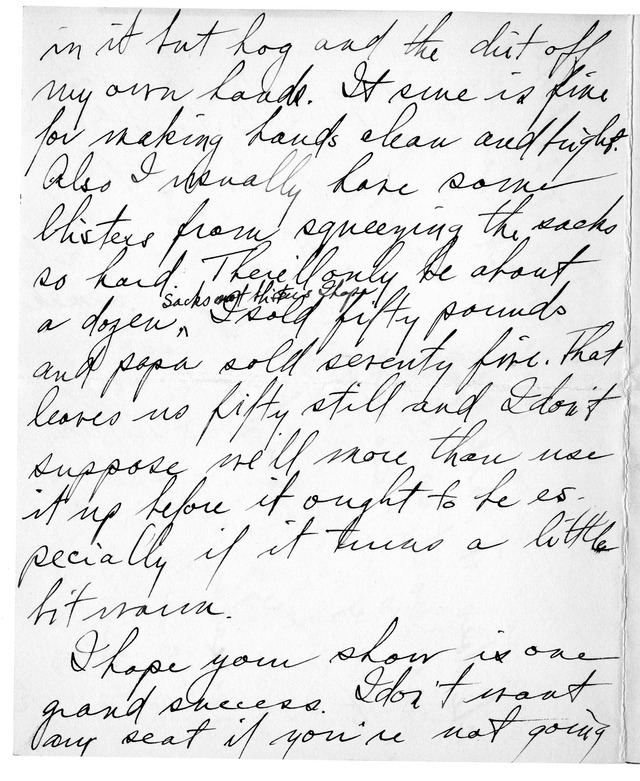 in it but hog and the dirt off
my own hands. It sure is fine
for making hands clean and bright.
Also I usually have some
blisters from squeezing the sacks
so hard. There'll only be about
sacks not blisters I hope
a dozen, I sold fifty pounds
and papa sold seventy five. That
leaves us fifty still and I don't
suppose we'll more than use
it up before it ought to be es-
pecially if it turns a little
bit warm.
I hope your show is one
grand success. I don't want
any seat if you're not going